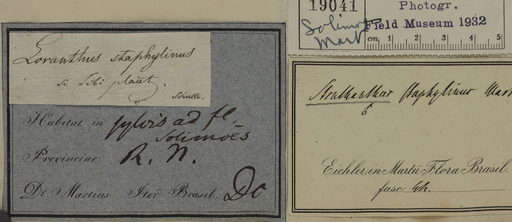 Loranthus staphylinus
si Tibi placet.
Schulte.
Habitat in sylvis ad fl.
Solimoës
Provinciae R. N.
De Martius Iter Brasil. Do
19041
Photogr.
Solimoës
Mart
Field Museum 1932
cm 1 2 3 4 5
Struthanthus staphylinus Mart
Eichler in Martii Flora Brasil.
fasc.